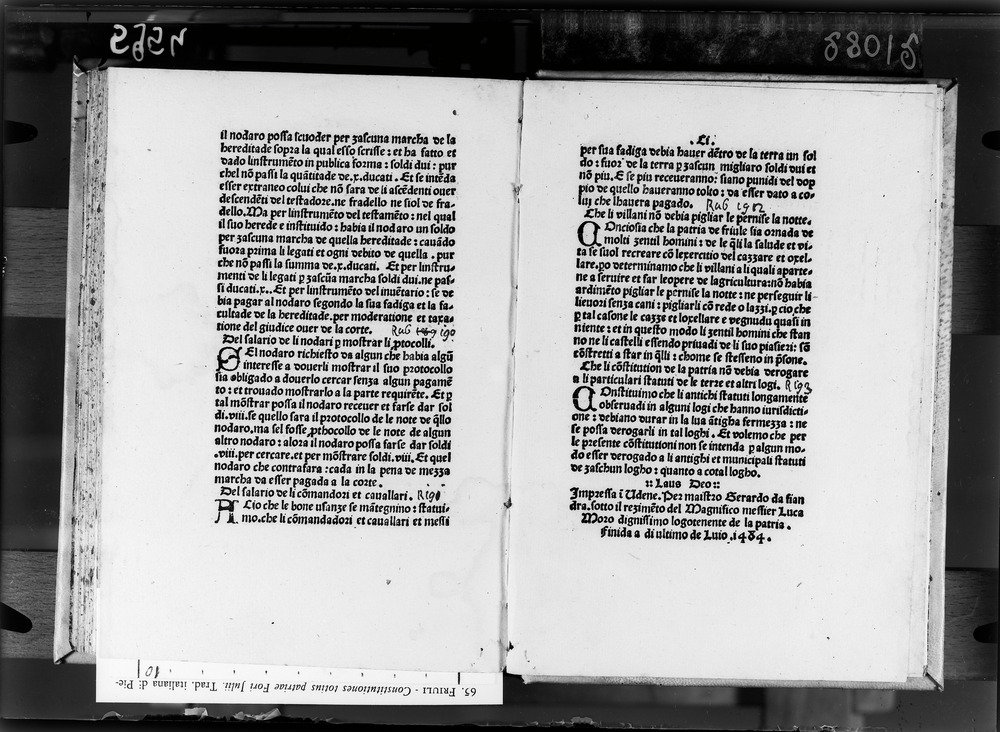 il nodaro possa scuoder per zascuna marcha de la
hereditade sopra la qual esso scrisse : et ha fatto et
dado linstrumēto in publica forma : soldi dui : pur
chel nō passi la quātitade de .x. ducati . Et se intēda
esser extraneo colui che nō sara de li ascēdenti ouer
descendēti del testadore. ne fradello ne fiol de fra-
dello. Ma per linstrumēto del testamēto : nel qual
il suo herede e instituido : habia il nodaro un soldo
per zascuna marcha de quella hereditade : cauādo
fuora prima li legati et ogni debito de quella . pur
che nō passi la summa de .x. ducati . Et per linstru-
menti de li legati ꝑ zascūa marcha soldi dui. ne pas-
si ducati .x.. Et per linstrumēto del inuētario : se de
bia pagar al nodaro segondo la sua fadiga et la fa-
cultade de la hereditade. per moderatione et taxa-
tione del giudice ouer de la corte. Rub 190
Del salario de li nodari ꝑ mostrar li ꝓtocolli.
SEl nodaro richiesto da algun che habia algū
interesse a douerli mostrar il suo protocollo
sia obligado a douerlo cercar senza algun pagamē
to : et trouado mostrarlo a la parte requirēte. Et ꝑ
tal mōstrar possa il nodaro receuer et farse dar sol
di .viii. se quello sara il protocollo de le note de q̄llo
nodaro. ma sel fosse ꝓthocollo de le note de algun
altro nodaro : alora il nodaro possa farse dar soldi
.viii. per cercare. et per mōstrare soldi .viii. Et quel
nodaro che contrafara : cada in la pena de mezza
marcha da esser pagada a la corte .
Del salario de li cōmandori et cauallari . R 191
ACio che le bone usanze se mātegnino : statui-
mo. che li cōmandadori et cauallari et messi
.Li.
per sua fadiga debia hauer dētro de la terra un sol
do : fuor de la terra ꝑ zascun migliaro soldi dui et
nō piu. E se piu receueranno : siano punidi del dop
pio de quello haueranno tolto : da esser dato a co-
lui che lhauera pagado. Rub 192
Che li villani nō debia pigliar le pernise la notte.
COnciosia che la patria de friule sia ornada de
molti zentil homini : de le q̄li la salude et vi-
ta se suol recreare cō lexercitio del cazzare et oxel-
lare. ꝑo determinamo che li villani a li quali aparte-
ne a seruire et far leopere de lagricultura: nō habia
ardimēto pigliar le pernise la notte : ne perseguir li
lieuori senza cani : pigliarli cō rede o lazzi. ꝑ cio che
ꝑ tal casone le cazze et loxellare e vegnudu quasi in
niente : et in questo modo li zentil homini che stan
no ne li castelli essendo priuadi de li suo piasieri: sō
cōstretti a star in q̄lli : chome se stesseno in p̄sone.
Che li cōstitution de la patria nō debia derogare
a li particulari statuti de le terre et altri logi . R 193
COnstituimo che li antichi statuti longamente
obseruadi in alguni logi che hanno iurisdicti-
one : debiano durar in la lua ātigha fermezza : ne
se possa derogarli in tal loghi . Et volemo che per
le presente cōstitutioni non se intenda ꝑ algun mo-
do esser derogado a li antighi et municipali statuti
de zaschun logho : quanto a cotal logho.
:: Laus Deo ::
Impressa ī Udene. Per maistro Gerardo da fian
dra. sotto il rezimēto del Magnifico messier Luca
Moro dignissimo logotenente de la patria .
Finida a di ultimo de Luio .1484.
4563
31088
65. FRIULI - Constitutiones totius patriae Fori Julii. Trad. italiana di Pie-
10